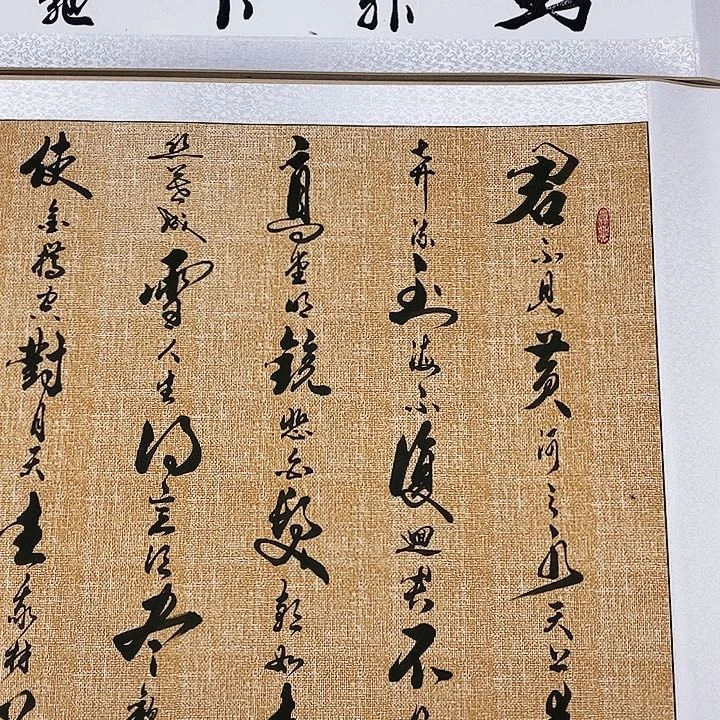 君不見黄河之水天上来
奔流到海不復迴君不見
高堂明鏡悲白髮朝如青
丝暮成雪人生得意須尽歡
使金樽空對月天生我材必